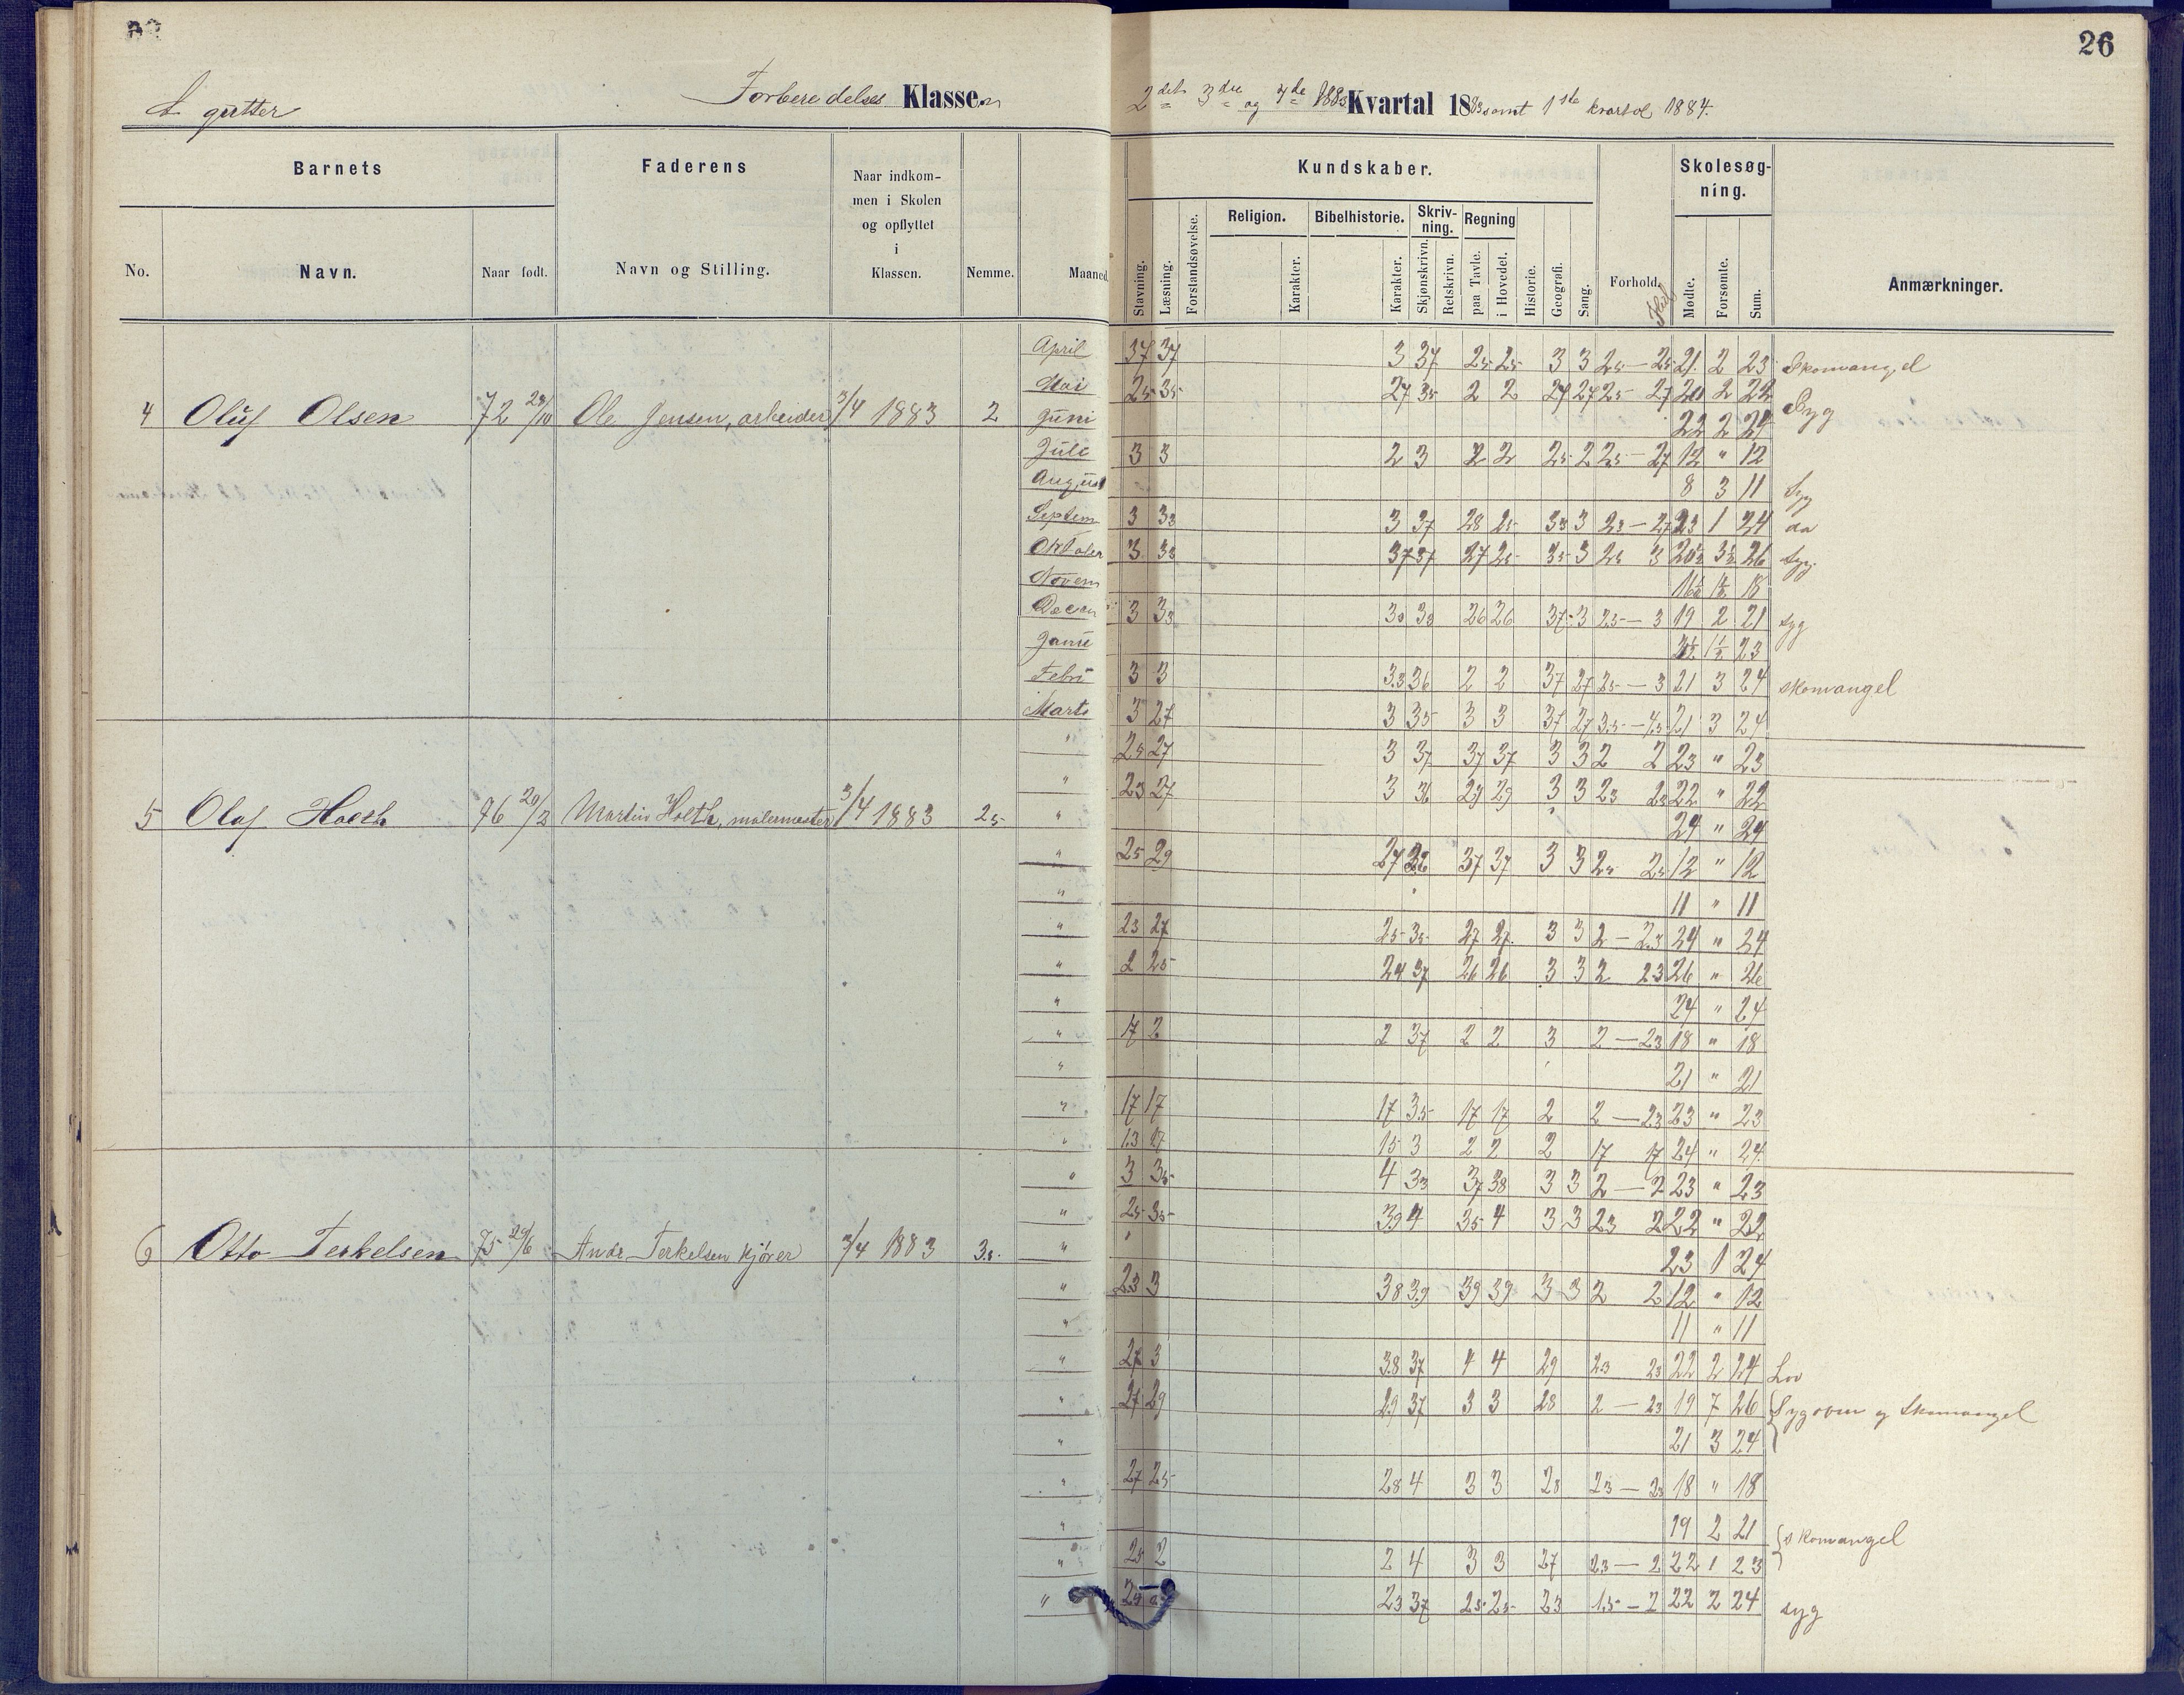 26
gutter
Forberedelses Klassen
2det 3die og 4de 1883 Kvartal 1883 samt 1ste kvartal 1884.
Barnets
Faderens
Naar indkom-
men i Skolen
og opflyttet
i
Klassen.
Kundskaber.
Skolesøg-
ning.
No.
Navn.
Naar født.
Navn og Stilling.
Nemme.
Maaned.
Stavning.
Læsning.
Forstandsøvelse.
Religion.
Karakter.
Bibelhistorie.
Karakter.
Skriv-
ning.
Skjønskrivn.
Retskrivn.
Regning
paa Tavle.
i Hovedet.
Historie.
Geografi.
Sang.
Forhold.
Flid
Mødte.
Forsømte.
Sum.
Anmærkninger.
4 Oluf Olsen 72 Ole Jensen, arbeider 3/4 1883 2
April 37 37 3 37 25 25 3 3 25 — 25 21 2 23 Skomangel
Mai 25 35 27 35 2 2 27 27 25 - 27 20 2 22 Syg
Juni 22 2 24
Juli 3 3 2 3 2 2 25 2 25 - 27 12 " 12
August 8 3 11 Syg
Septem 3 33 3 37 28 25 33 3 23 - 27 23 1 24 do
Oktober 3 33 37 37 27 25 35 3 25 3 20½ 5½ 26 Syg
Novem 16½ 1½ 18
Decem 3 33 33 33 26 26 37 3 25 — 3 19 2 21 syg
Janu 1½ 23
Febru 3 3 33 36 2 2 37 27 25 — 3 21 3 24 skomangel
Marts 3 27 3 35 3 3 37 27 35 — 45 21 3 24
5 Olaf Holth 76 20/2 Martin Holth, malermester 3/4 1883 25
" 25 27 3 37 37 37 3 3 2 2 23 " 23
" 23 27 3 36 29 29 3 3 23 23 22 " 22
" 24 " 24
" 25 29 27 36 37 37 3 3 25 25 12 " 12
" 11 " 11
" 23 27 25 35 27 27 3 3 2 — 23 24 " 24
" 2 25 24 37 26 26 3 3 2 23 26 " 26
" 24 " 24
" 17 2 2 37 2 2 3 2 — 23 18 " 18
" 21 " 21
" 17 17 17 35 17 17 2 2 — 23 23 " 23
" 13 17 15 3 2 2 2 17 17 24 " 24
6 Otto Terkelsen 75 29/6 Andr Terkelsen kjører 3/4 1883 35
" 3 35 4 33 37 38 3 3 2 — 2 23 " 23
" 25 35 39 4 35 4 3 3 23 2 22 " 22
" 23 1 24
" 23 3 38 39 39 39 3 3 2 2 12 " 12
" 11 " 11
" 27 3 38 37 4 4 29 23 23 22 2 24 Lov
" 27 29 29 37 3 3 28 2 — 23 19 7 26 Sygdom og Skomangel
" 21 3 24
" 27 25 28 4 3 3 28 23 — 23 18 " 18
" 19 2 21 skomangel
" 25 2 2 4 3 3 27 23 — 2 22 1 23
" 25 23 37 25 25 23 15 - 2 22 2 24 syg